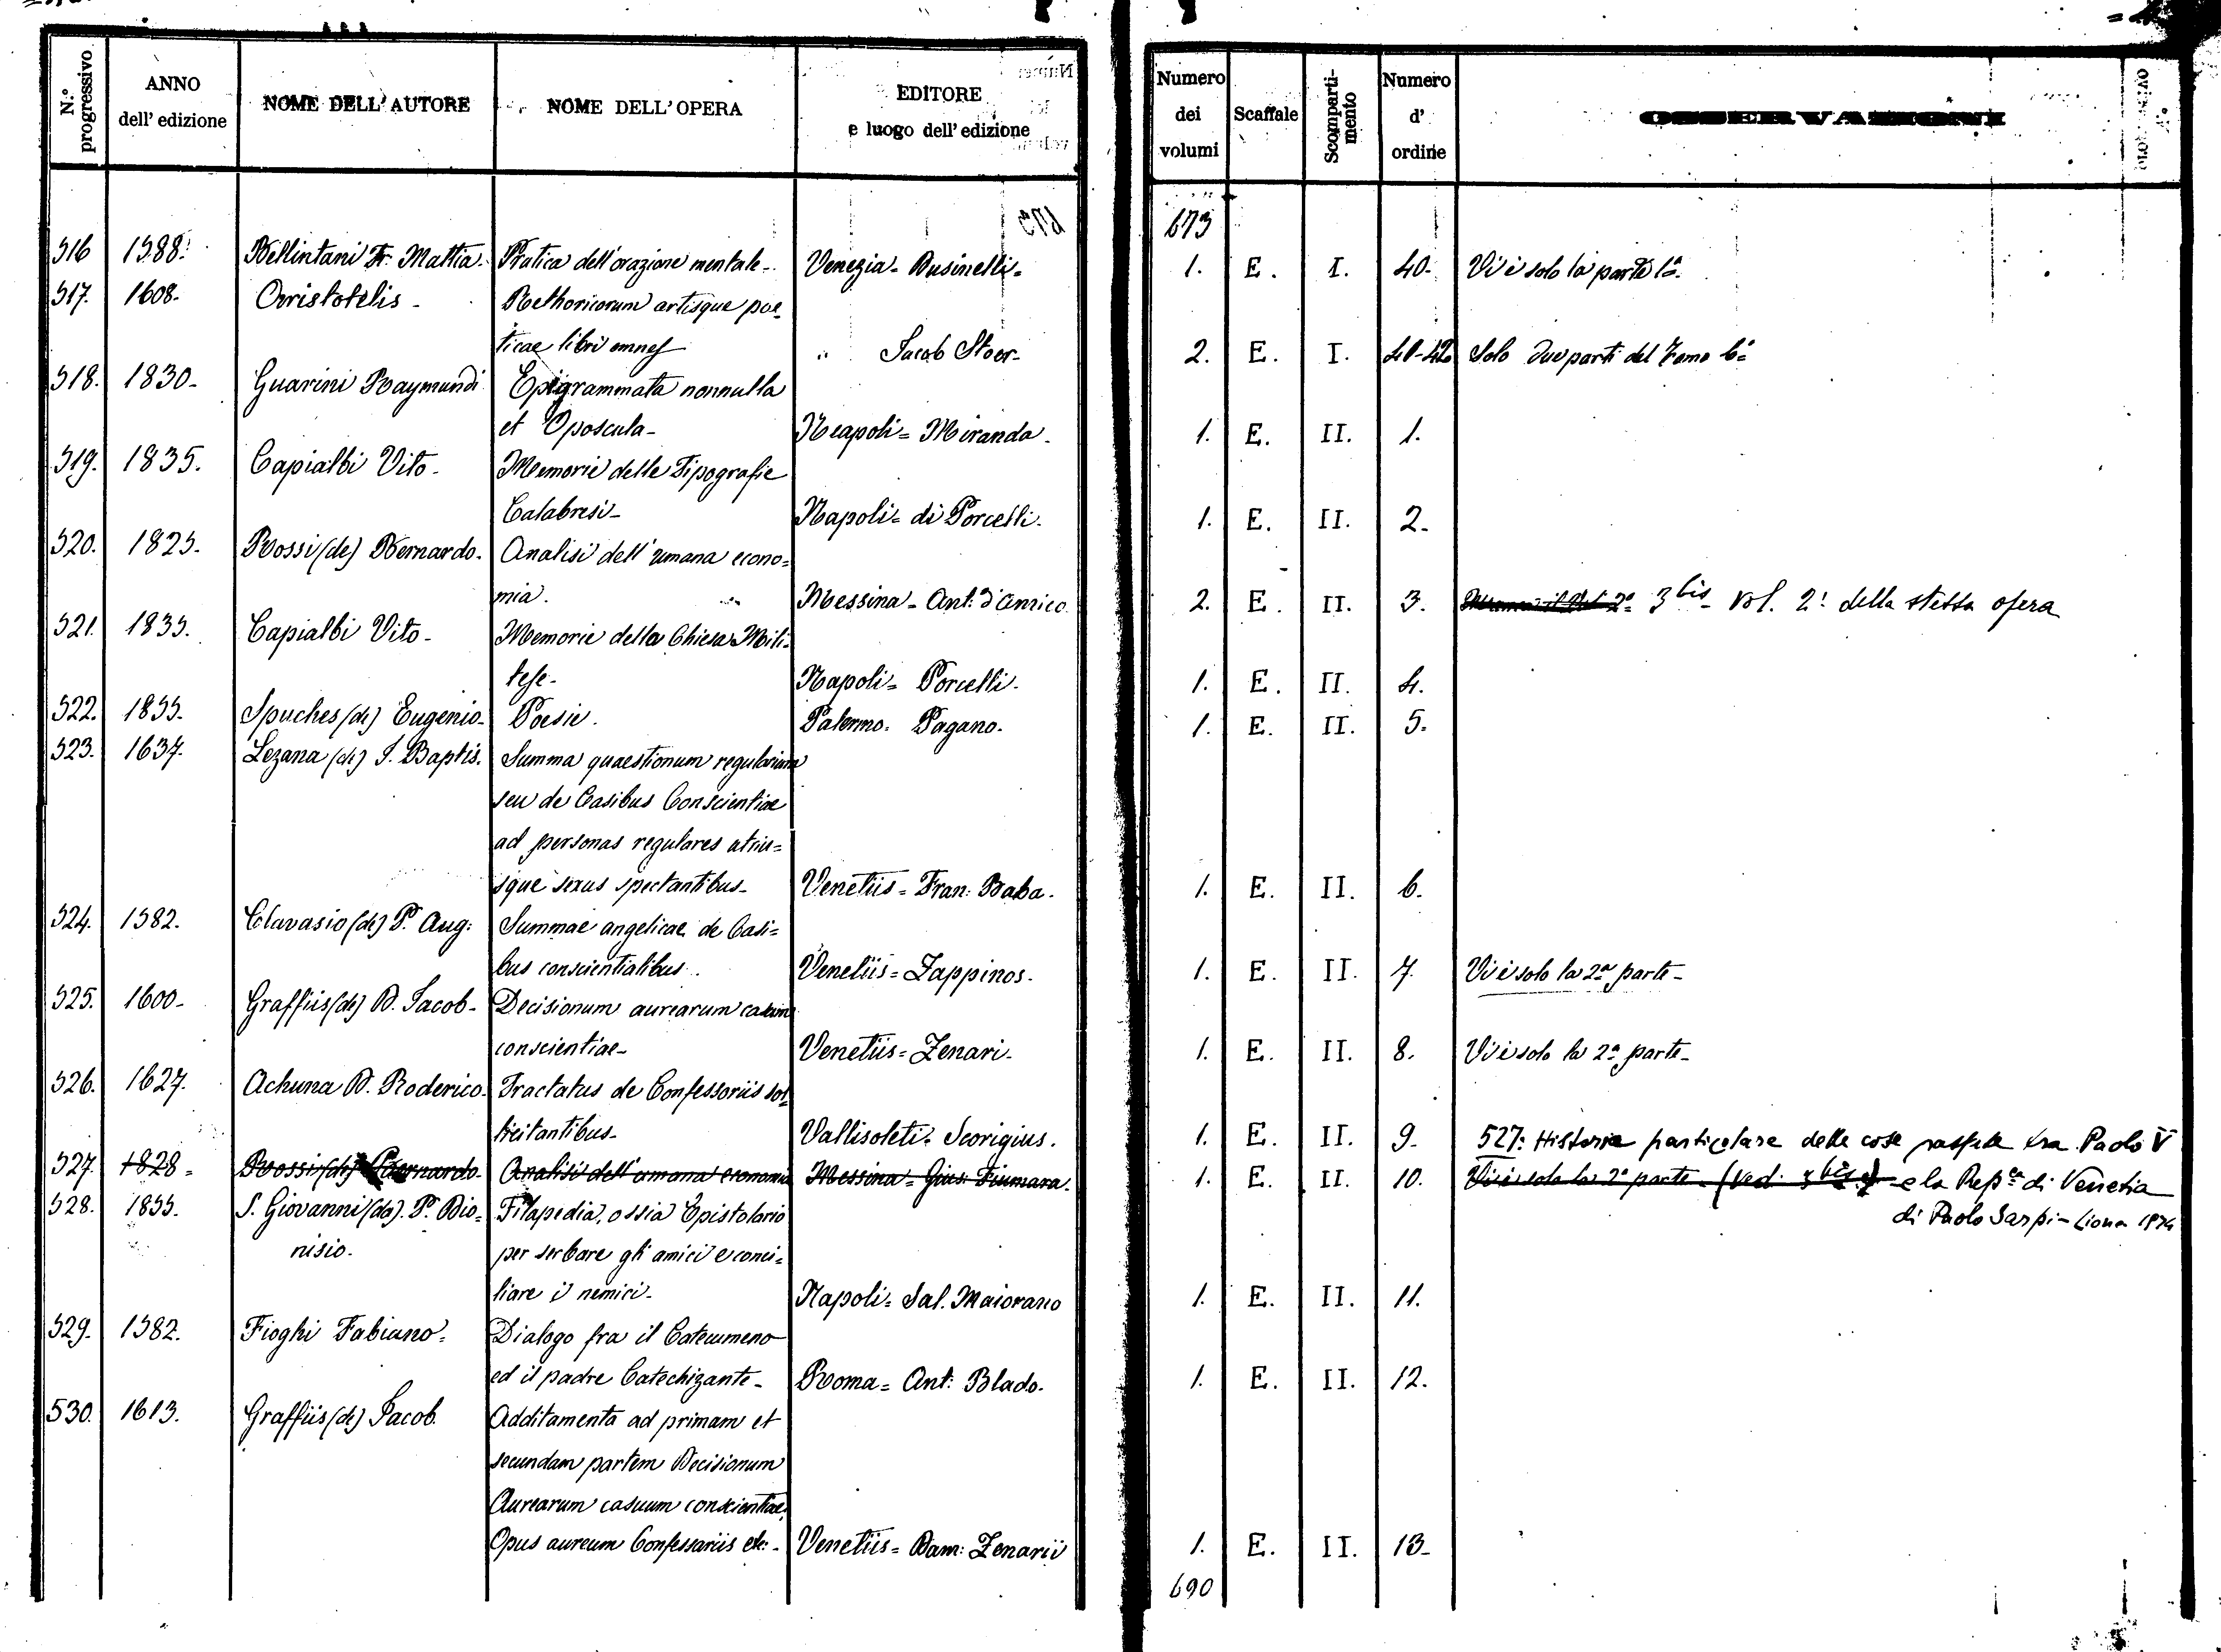 N.º progressivo ANNO dell' edizione NOME DELL'AUTORE NOME DELL'OPERA EDITORE e luogo dell'edizione Numero dei volumi Scaffale Scomparti-mento Numero d' ordine OSSERVAZIONI
673
516 1588. Bellintani Fr. Mattia. Pratica dell'orazione mentale. Venezia - Businelli. 1. E. I. 40. Vi è solo la parte 1ª
517. 1608. Aristotelis - Rethoricorum artisque poe-
ticae libri omnes " Jacob Stoer. 2. E. I. 41-42 Solo due parti del Tomo 6º
518. 1830. Guarini Raymundi Epigrammata nonnulla
et Oposcula - Neapoli = Miranda. 1. E. II. 1.
519. 1835. Capialbi Vito - Memorie delle Tipografie
Calabresi - Napoli = di Porcelli. 1. E. II. 2.
520. 1825. Rossi (de) Bernardo. Analisi dell'umana econo=
mia. Messina - Ant: d'Amico 2. E. II. 3. 3 bis - Vol. 2º della stessa opera
521. 1835. Capialbi Vito - Memorie della Chiesa Mili-
tese - Napoli = Porcelli. 1. E. II. 4.
522. 1835. Spuches (de) Eugenio - Poesie. Palermo. Pagano. 1. E. II. 5.
523. 1637. Lezana (de) J. Baptis. Summa quaestionum regularium
seu de Casibus Conscientiae
ad personas regulares utriu=
sque sexus spectantibus - Venetiis = Fran: Baba. 1. E. II. 6.
524. 1582. Clavasio (de) P. Aug: Summae angelicae de Casi=
bus conscientialibus. Venetiis = Zappinos. 1. E. II. 7. Vi è solo la 2ª parte -
525. 1600. Graffiis (de) D. Jacob - Decisionum aurearum casuum
conscientiae - Venetiis = Zenari. 1. E. II. 8. Vi è solo la 2ª parte -
526. 1627. Achuna D. Roderico. Tractatus de Confessoriis sol=
licitantibus - Vallisoleti. Scorigius. 1. E. II. 9. 527: Historia particolare delle cose passate tra Paolo V
527. 1828 = Rossi (de) Bernardo - Analisi dell'umana economia Messina = Gius: Fiumara. 1. E. II. 10. Vi è solo la 2ª parte - (Ved. 3 bis) e la Rep.ca di Venetia
di Paolo Sarpi - Lione
528. 1855. S. Giovanni (da). P. Dio= Filapedia, ossia Epistolario
nisio. per serbare gli amici e conci=
liare i nemici - Napoli = Sal. Maiorano 1. E. II. 11.
529. 1582. Fioghi Fabiano = Dialogo fra il Catecumeno
ed il padre Catechizante - Roma = Ant: Blado. 1. E. II. 12.
530. 1613. Graffiis (de) Jacob. Additamenta ad primam et
secundam partem Decisionum
Aurearum casuum conscientiae.
Opus aureum Confessariis etc: - Venetiis = Dam: Zenarii 1. E. II. 13.
690